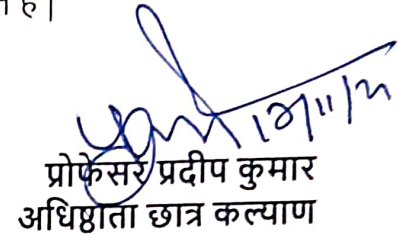 है।
12/11/21
प्रोफेसर प्रदीप कुमार
अधिष्ठाता छात्र कल्याण